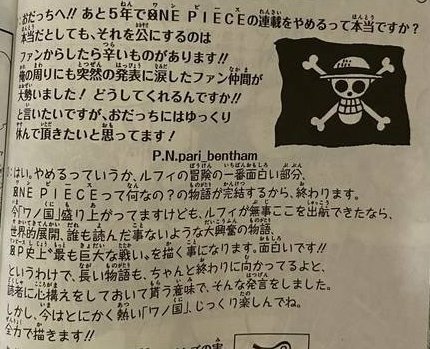 おだっちへ!! あと5年でONE PIECEの連載をやめるって本当ですか?
本当だとしても、それを公にするのは
ファンからしたら辛いものがあります!!
俺の周りにも突然の発表に涙したファン仲間が
大勢いました! どうしてくれるんですか!!
と言いたいですが、おだっちにはゆっくり
休んで頂きたいと思ってます!
P.N.pari_bentham
はい。やめるっていうか、ルフィの冒険の一番面白い部分、
ONE PIECEって何なの?の物語が完結するから、終わります。
今「ワノ国」盛り上がってますけども、ルフィが無事ここを出航できたなら、
世界的展開、誰も読んだ事ないような大興奮の物語、
OP史上〝最も巨大な戦い〟を描く事になります。面白いです!!
というわけで、長い物語も、ちゃんと終わりに向かってるよと、
読者に心構えをしておいて貰う意味で、そんな発言をしました。
しかし、今はとにかく熱い「ワノ国」、じっくり楽しんでね。
全力で描きます!!